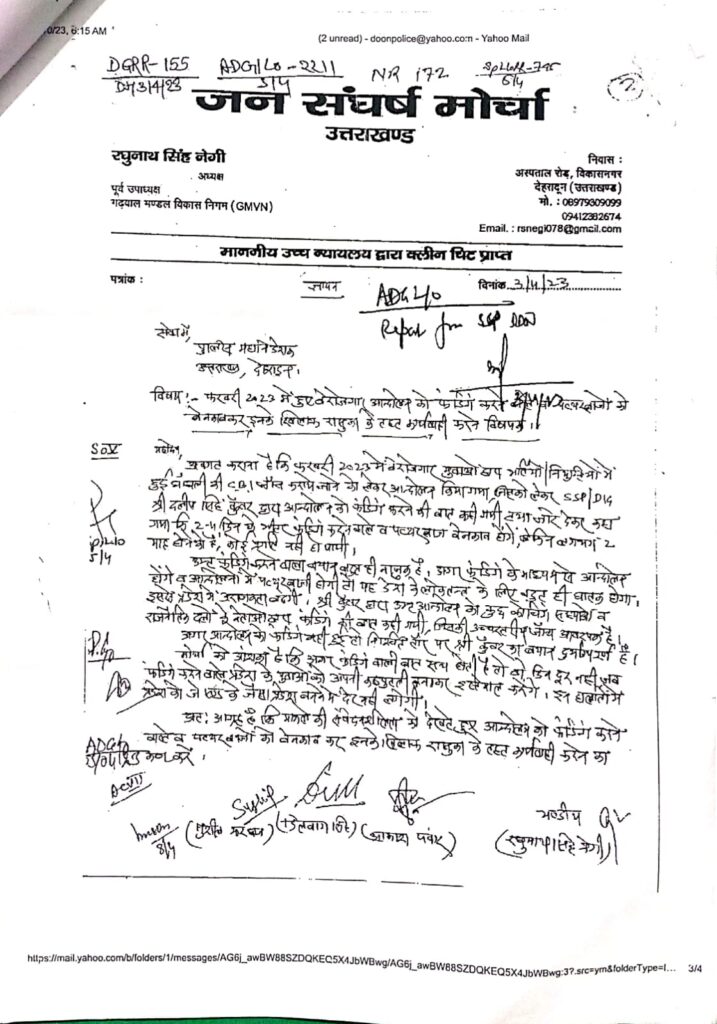 0/23, 6:15 AM
(2 unread) - doonpolice@yahoo.com - Yahoo Mail
DGRR-155
ADG/Lo-2211
NR 172
5/4
5/4
जन संघर्ष मोर्चा
उत्तराखण्ड
रघुनाथ सिंह नेगी
अध्यक्ष
पूर्व उपाध्यक्ष
गढ़वाल मण्डल विकास निगम (GMVN)
निवास :
अस्पताल रोड, विकासनगर
देहरादून (उत्तराखण्ड)
मो. : 08979309099
09412382674
Email. : rsnegi078@gmail.com
माननीय उच्च न्यायलय द्वारा क्लीन चिट प्राप्त
पत्रांक :
ज्ञापन
दिनांक 3/4/23
ADG L/O
Report from SSP DDN
सेवा में,
पुलिस महानिदेशक
उत्तराखण्ड, देहरादून।
विषय :- फरवरी 2023 में हुए बेरोजगार आन्दोलन को फंडिंग करने वाले व पत्थरबाजों को
बेनकाब कर इनके खिलाफ रासुका के तहत कार्यवाही करने विषयक।
महोदय,
अवगत कराना है कि फरवरी 2023 में बेरोजगार युवाओं द्वारा भर्तियों/नियुक्तियों में
हुई धांधली की C.B.I. जाँच कराये जाने को लेकर आन्दोलन किया गया, जिसको लेकर SSP/DIG
श्री दलीप सिंह कुँवर द्वारा आन्दोलन को फंडिंग करने की बात कही गयी, तथा जोर देकर कहा
गया कि 2-4 दिन के भीतर फंडिंग करने वाले व पत्थरबाज बेनकाब होंगे, लेकिन लगभग 2
माह होने को है, कोई प्रगति नहीं हो पायी।
उक्त फंडिंग करने वाला बयान बहुत ही नाजुक है। अगर फंडिंग के माध्यम से आन्दोलन
होंगे व आन्दोलनों में पत्थरबाजी होगी तो यह देश के लोकतन्त्र के लिए बहुत ही घातक होगा।
इससे प्रदेश में अराजकता बढेगी। श्री कुँवर द्वारा उक्त आन्दोलन को कुछ कोचिंग संस्थानों व
राजनैतिक दलों के नेताओं द्वारा फंडिंग की बात कही गयी, जिसकी उच्चस्तरीय जाँच आवश्यक है।
अगर आन्दोलन को फंडिंग नहीं हुई तो निश्चित तौर पर श्री कुँवर का बयान दुर्भाग्यपूर्ण है।
मोर्चा को आशंका है कि अगर फंडिंग वाली बात सत्य होती है तो वो दिन दूर नहीं, जब
फंडिंग करने वाले प्रदेश के युवाओं को अपनी कठपुतली बनाकर इस्तेमाल करेंगे। इन हालातों में
अतः आग्रह है कि मामले की संवेदनशीलता को देखते हुए आन्दोलन को फंडिंग करने
वाले व पत्थरबाजों को बेनकाब कर इनके खिलाफ रासुका के तहत कार्यवाही करने का
कष्ट करें।
Sushil
भवदीय
(दिलबाग सिंह)
(आकाश पंवार)
(रघुनाथ सिंह नेगी)
8/4
https://mail.yahoo.com/b/folders/1/messages/AG6j_awBW88SZDQKEQ5X4JbWBwg/AG6j_awBW88SZDQKEQ5X4JbWBwg:3?.src=ym&folderType=I...
3/4